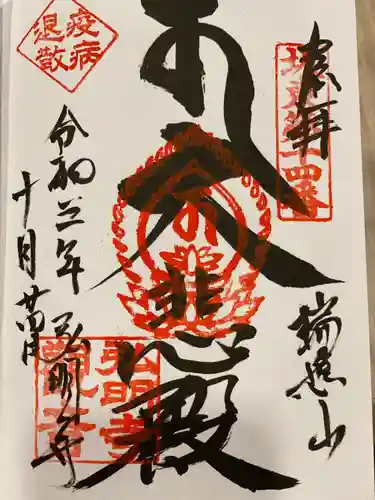 奉拝
坂東第十四番
瑞應山
大悲殿
弘明寺
疫病
退散
令和三年
十月廿四日
弘明寺